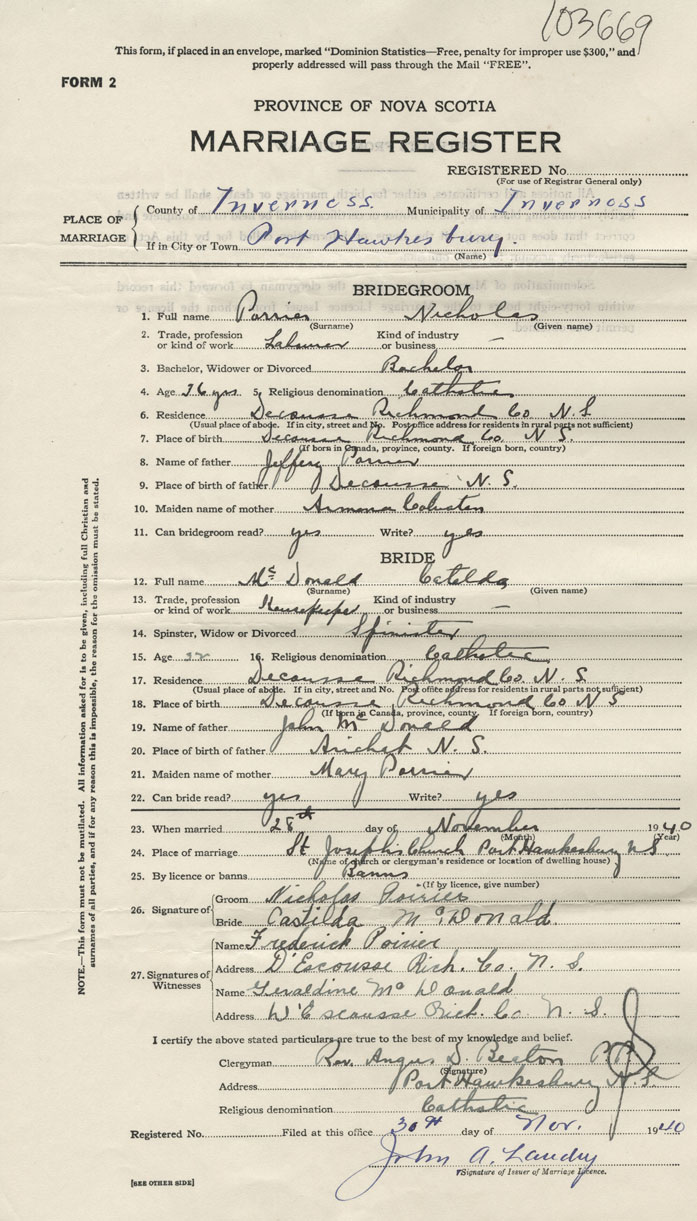 103669
This form, if placed in an envelope, marked "Dominion Statistics—Free, penalty for improper use $300," and
properly addressed will pass through the Mail "FREE".
FORM 2
PROVINCE OF NOVA SCOTIA
MARRIAGE REGISTER
REGISTERED No.
(For use of Registrar General only)
PLACE OF MARRIAGE
County of Inverness. Municipality of Inverness
If in City or Town Port Hawkesbury.
(Name)
BRIDEGROOM
1. Full name Porrier Nicholas
(Surname) (Given name)
2. Trade, profession or kind of work Labourer Kind of industry or business —
3. Bachelor, Widower or Divorced Bachelor
4. Age 36 yrs 5. Religious denomination Catholic
6. Residence Decousse Richmond Co. N. S.
(Usual place of abode. If in city, street and No. Post office address for residents in rural parts not sufficient)
7. Place of birth Decousse Richmond Co. N S.
(If born in Canada, province, county. If foreign born, country)
8. Name of father Jeffery Porrier
9. Place of birth of father Decousse N. S.
10. Maiden name of mother
11. Can bridegroom read? yes Write? yes
BRIDE
12. Full name Mc Donald Catilda
(Surname) (Given name)
13. Trade, profession or kind of work Housekeeper Kind of industry or business —
14. Spinster, Widow or Divorced Spinister
15. Age 16. Religious denomination Catholic
17. Residence Decousse Richmond Co. N. S
(Usual place of abode. If in city, street and No. Post office address for residents in rural parts not sufficient)
18. Place of birth Decousse Richmond Co N S
(If born in Canada, province, county. If foreign born, country)
19. Name of father John Mc Donald
20. Place of birth of father Arichat N. S.
21. Maiden name of mother Mary Porrier
22. Can bride read? yes Write? yes
23. When married 28th day of November 1940
(Month) (Year)
24. Place of marriage St Joseph's Church Port Hawkesbury N S
(Name of church or clergyman's residence or location of dwelling house)
25. By licence or banns Banns
(If by licence, give number)
26. Signature of
Groom Nicholas Poirier
Bride Castilda McDonald
27. Signatures of Witnesses
Name Frederick Poirier
Address D'Escousse Rich. Co. N. S.
Name Geraldine McDonald
Address D'Escousse Rich. Co. N. S.
I certify the above stated particulars are true to the best of my knowledge and belief.
Clergyman Rev. Angus D. Beaton P.P.
(Signature)
Address Port Hawkesbury N. S
Religious denomination Catholic
Registered No. Filed at this office 30th day of Nov. 1940
John A. Landry
Signature of Issuer of Marriage Licence.
[SEE OTHER SIDE]
NOTE.—This form must not be mutilated. All information asked for is to be given, including full Christian and
surnames of all parties, and if for any reason this is impossible, the reason for the omission must be stated.